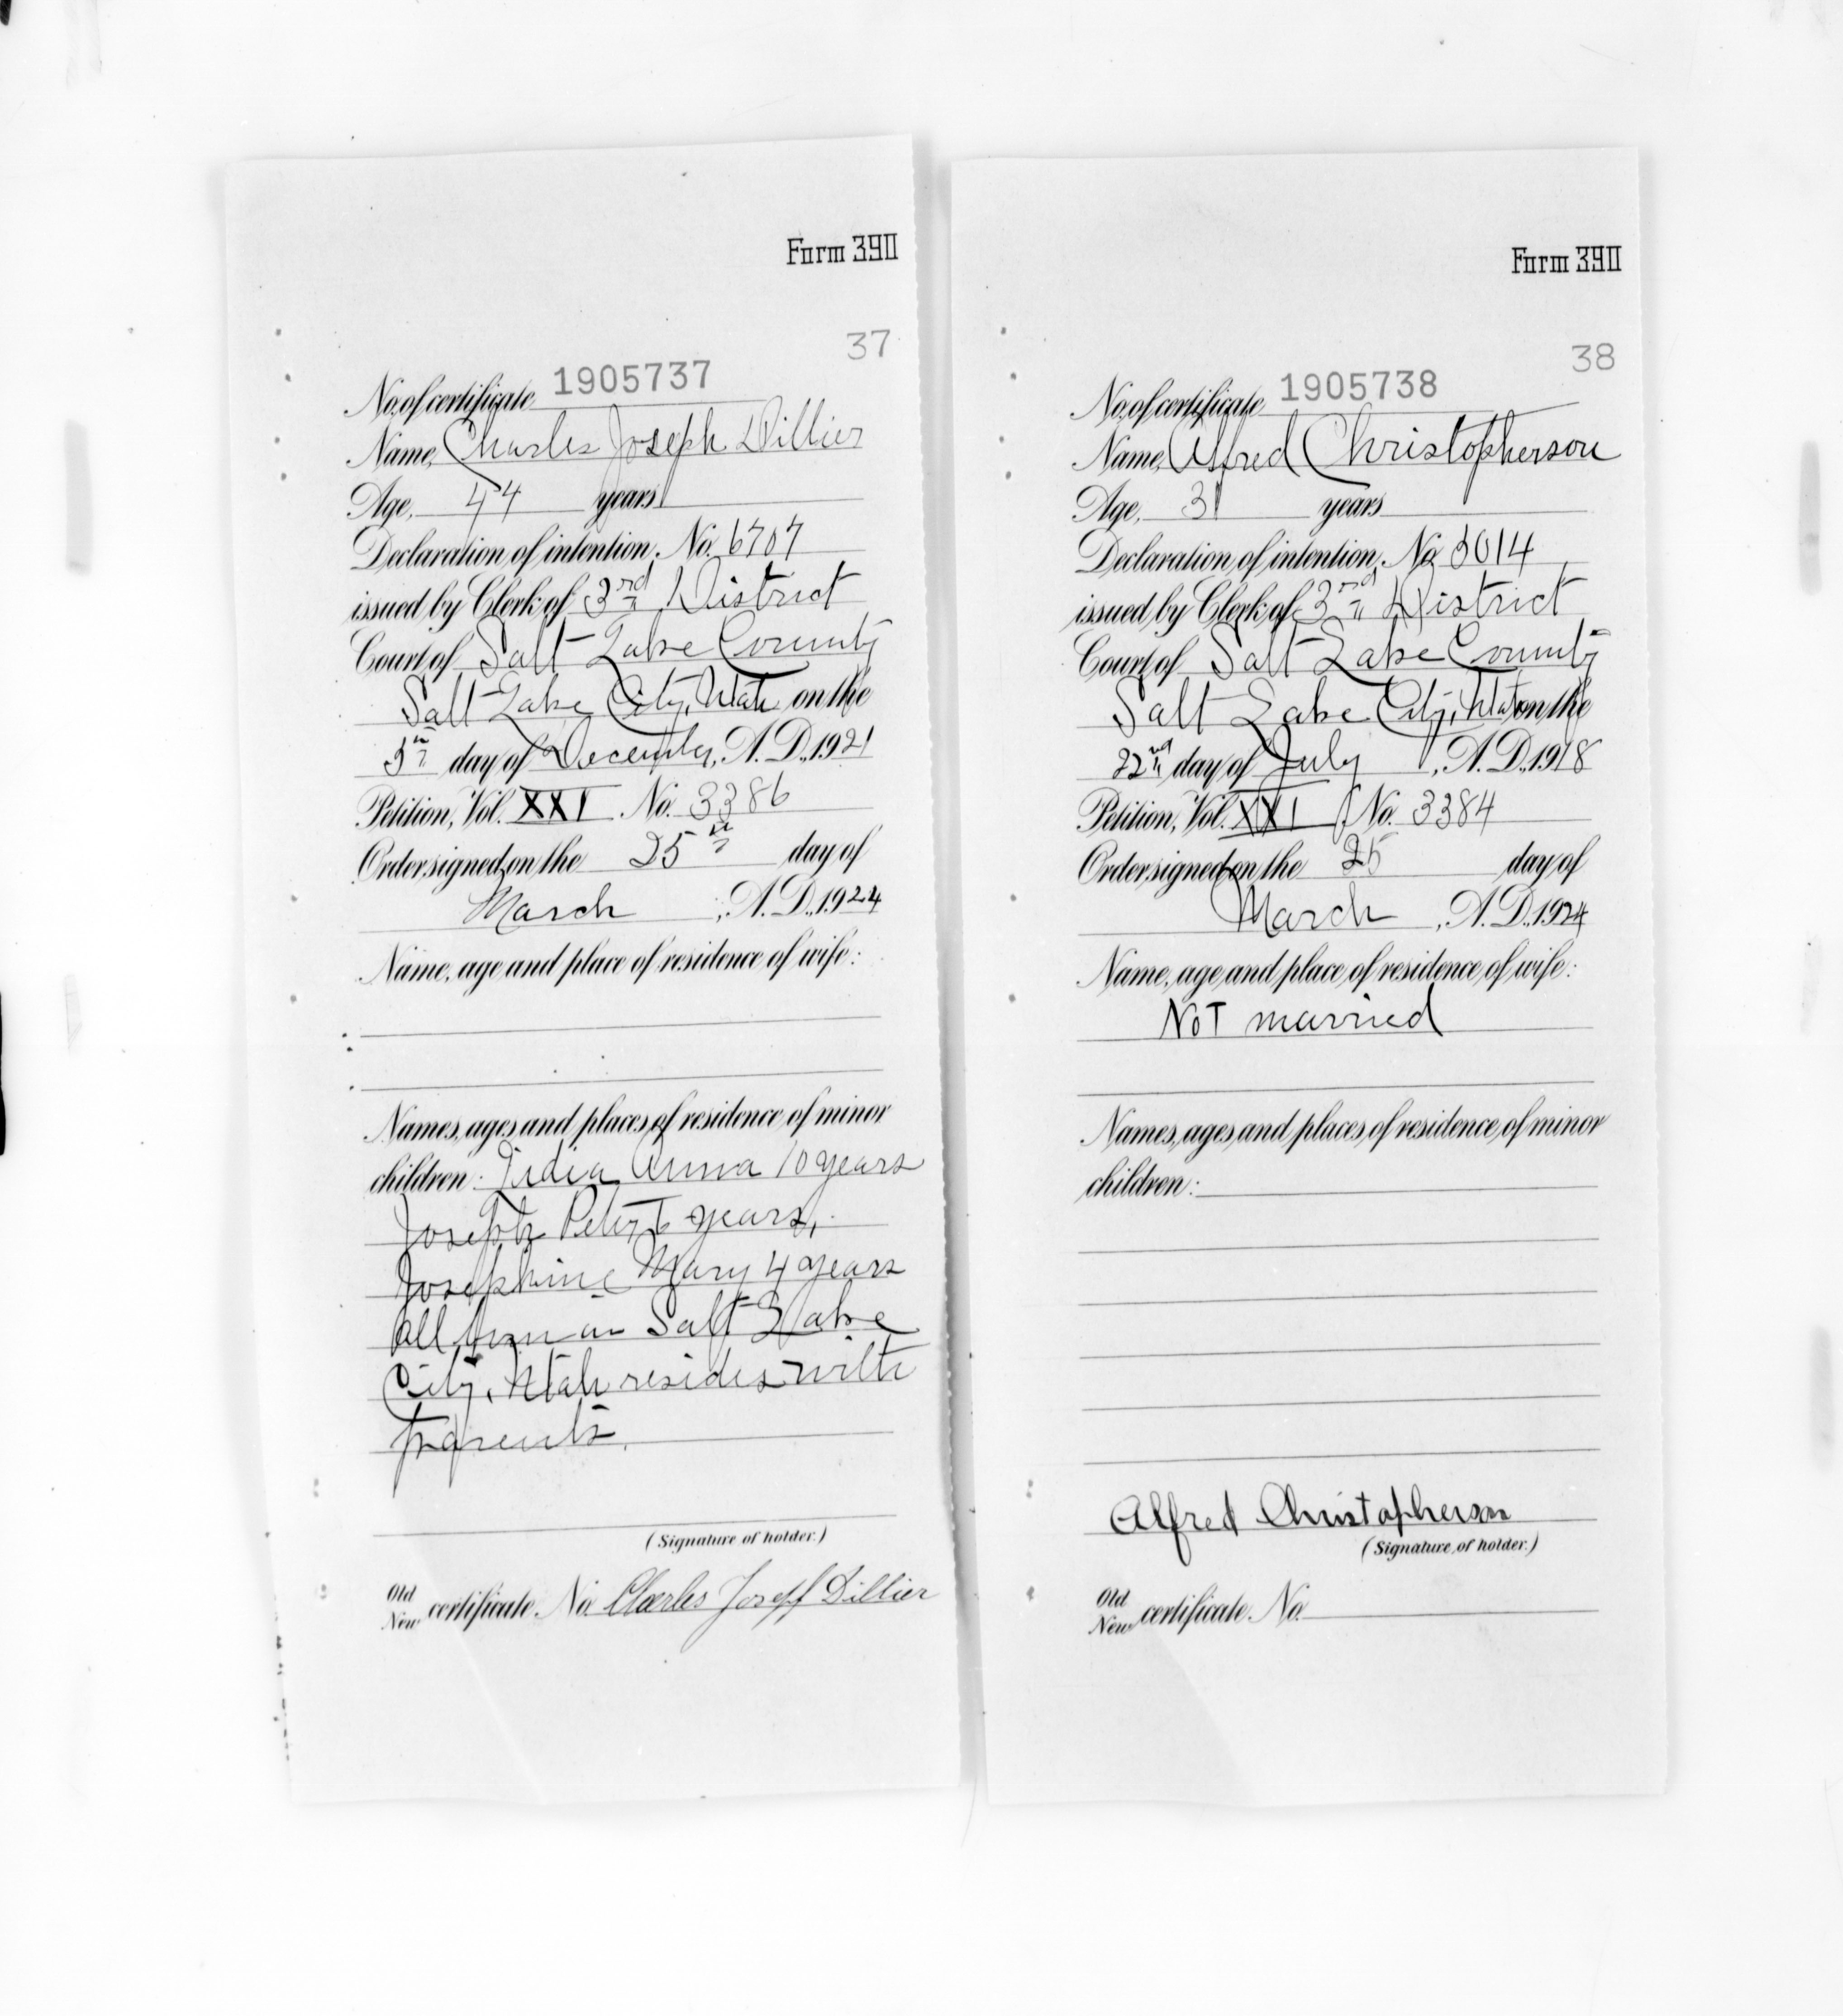 Form 390
37
No. of certificate, 1905737
Name, Charles Joseph Dillier
Age, 44 years
Declaration of intention, No. 6707
issued by Clerk of 3rd District
Court of Salt Lake County
Salt Lake City, Utah on the
5th day of December, A. D., 1921
Petition, Vol. XXI No. 3386
Order signed on the 25th day of
March, A. D., 1924
Name, age and place of residence of wife:
Names, ages and places of residence of minor
children: Anna 10 years
Joseph Peter 6 years,
Josephine Mary 4 years
all born in Salt Lake
City, Utah resides with
parents.
(Signature of holder.)
Old
New certificate No. Charles Joseff Dillier
Form 390
38
No. of certificate, 1905738
Name, Alfred Christopherson
Age, 31 years
Declaration of intention, No. 3014
issued by Clerk of 3rd District
Court of Salt Lake County
Salt Lake City, Utah on the
22nd day of July, A. D., 1918
Petition, Vol. XXI, No. 3384
Order signed on the 25 day of
March, A. D., 1924
Name, age and place of residence of wife:
NoT married
Names, ages and places of residence of minor
children:
Alfred Christopherson
(Signature of holder.)
Old
New certificate No.